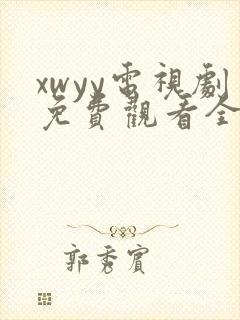 xwyy電視劇
免費觀看全
郭秀賓